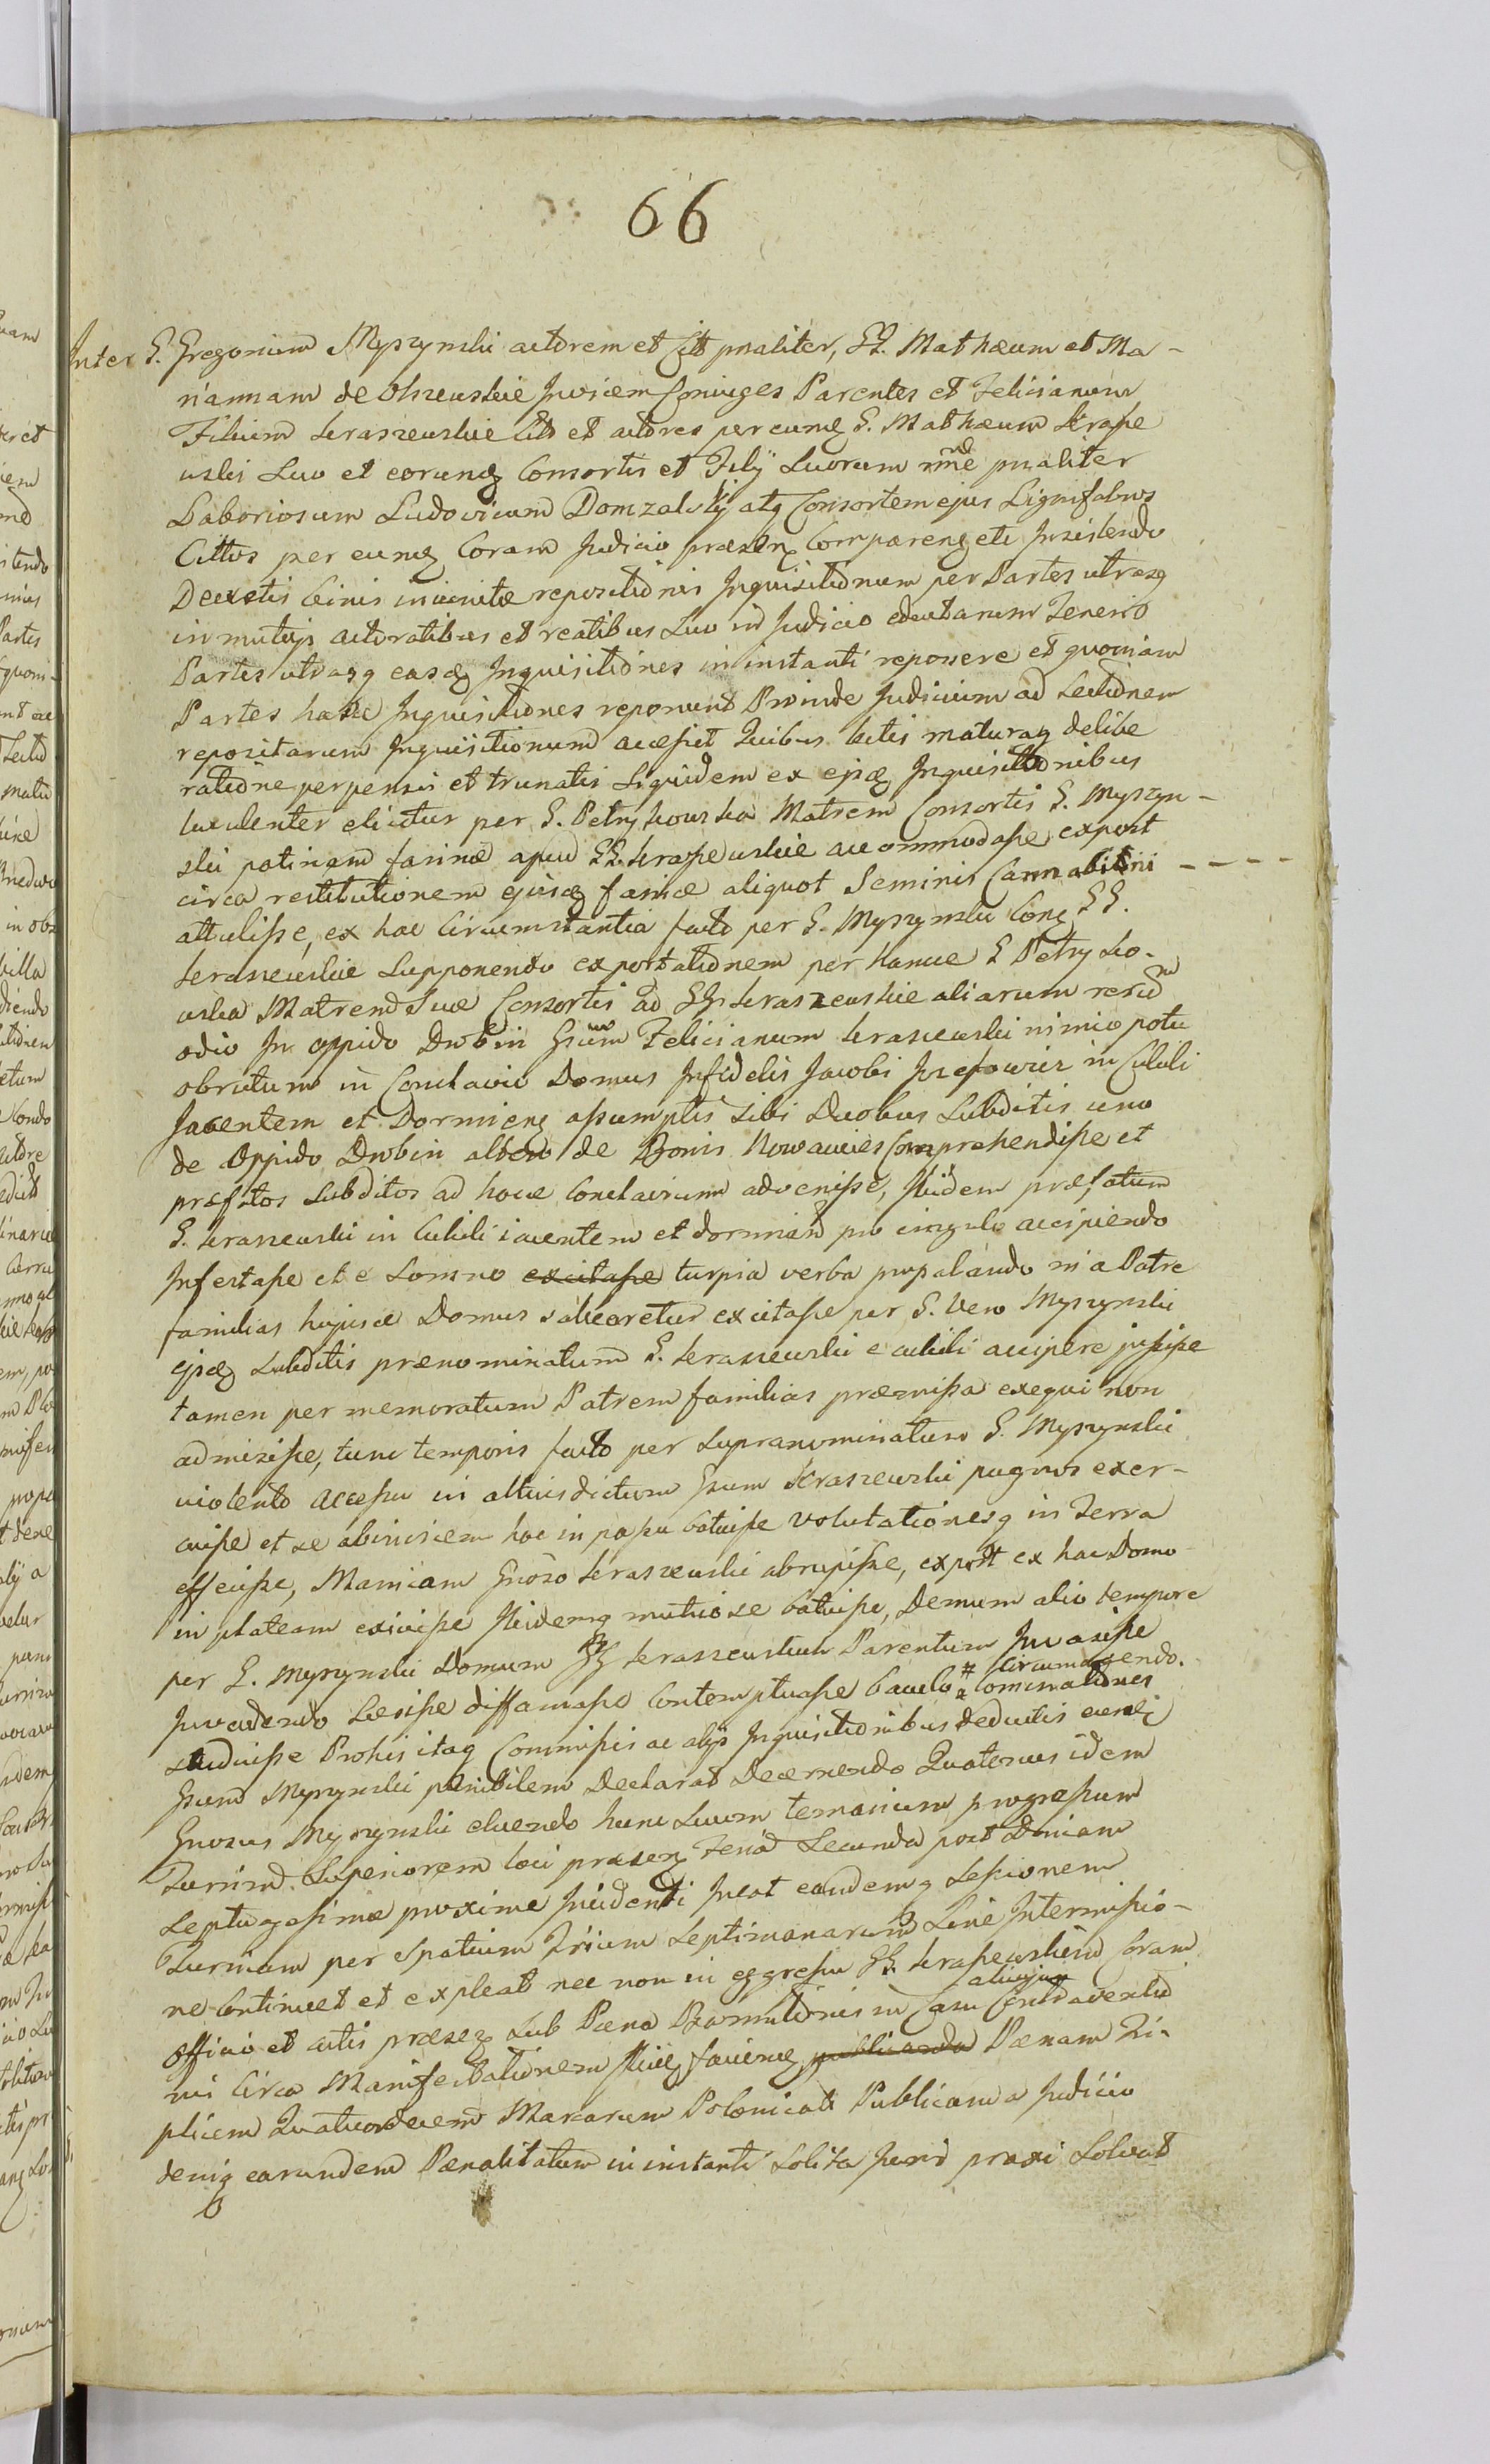 66
Inter G. Gregorium Myszynski actorem et Citt pnaliter, GG. Mathæum et Ma-
riannam de Olszewskie Invicem Coniuges Parentes et Felicianum
Filium Kraszewskie Citt et actores per eumq G. Mathæum Krasze
wski Suo et eorunq Consortis et Filij Suorum nne pnaliter
Laboriosum Ludovicum Domzalski atq Consortem ejus Lignifabros
Cittos per eumq Coram Judicio præsenq Comparenq etc Insistendo
Decretis binis repositionis Inquisitionum per Partes utrasq
in mutuis actoratibus et reatibus Suo in Judicio eductarum Tenerio
Partes utrasq easq Inquisitiones in instanti reponere et quoniam
Partes hasce Inquisitiones reponunt Proinde Judicium ad Lectionem
repositarum Inquisitionum accessit Quibus lectis maturaq delibe
ratione perpensis et trutinatis Siquidem ex ejsq Inquisitionibus
luculenter elicitur per G. Petrykowska Matrem Consortis G. Myszyn-
ski patinam farinæ apud GG. Kraszewskie accommodasse expost
circa restitutionem ejusq farinæ aliquot Seminis Cannabini - - - -
attulisse, ex hac Circumstantia facto per G. Myszynski Conq GG.
Kraszewskie Supponendo exportationem per hance G Petryko-
wska Matrem Suæ Consortis ad GG Kraszewskie aliarum rerum
odio In oppido Dubin Gsum Felicianum Kraszewski nimio potu
obrutum in Conclavio Domus Infidelis Jacobi Josefowicz in Cubili
Jacentem et Dormienq assumptis Sibi Duobus Subditis uno
de Oppido Dubin altero de Bonis Nowawies Comprehendisse et
præfatos Subditos ad hoce Conclavium advenisse, Ibidem præfatum
G. Kraszewski in Cubili iacentem et dormien pro cingulo accipiendo
Infestasse et e Somno excitasse turpia verba propalando ni a Patre
familias hujusce Domus saltearetur excitasse per G. Vero Myszynski
ejsq Subditis prænominatum G. Kraszewski e cubili accipere jussisse
tamen per memoratum Patrem familias præmissa exequi non
admisisse, tunc temporis facto per Supranominatum G. Myszynski
violento accessu in altuisdictum Gsum Kraszewski pugnos exer-
cuisse et se abinvicem hac in passu batuisse volutationesq in Terra
effecisse, Manicam Gnoso Kraszewski abrupisse, expost ex hac Domo
in plateam exivisse Ibidemq mutuo se batuisse, Demum alio tempore
per G. Myszynski Domum GG Kraszewskich Parentum Invasisse
Invadendo Læsisse diffamasse Contemptuasse baculo # Circumagendo.
# Cominationes
studuisse Prohis itaq Commissis ac alijs Inquisitionibus deductis eunq
Gsum Myszynski pænibilem Declarat Decernendo Quatenus idem
Gnosus Myszynski eluendo hunc Suum temerarium progressum
Turrim Superiorem loci præsenq Fena Secunda post Dnicam
Septuagesimæ proxime Incidenti Ineat eandemq Sessionem
Turriam per Spatium Trium Septimanarum Sine Intermissio-
ne Continuet et expleat nec non in eggressu GG. Kraszewskim Coram
officio et actis præsenq Sub Pæna Bannitionis in Casu Contraventio
alicujus
nis Circa Manifestationem Ibiq faciend publicanda Pænam Tri-
plicem Quatuordecem Marcarum Polonicali Publicam a Judicio
deniq earundem Pænalitatum in instanti Solita Juris praxi Solvat